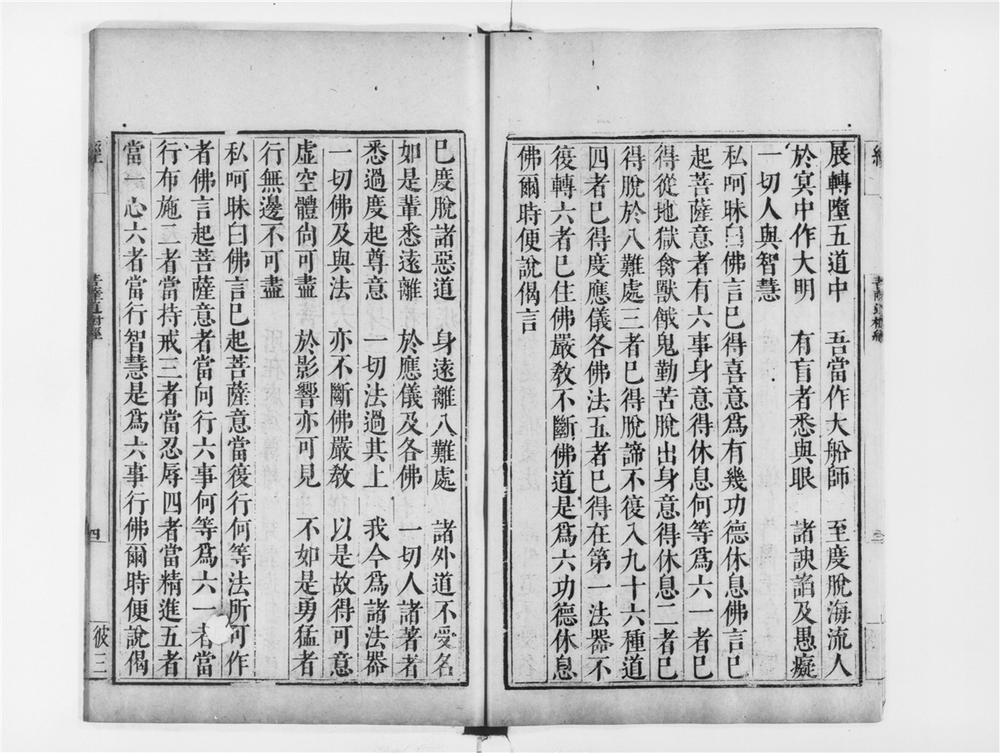 展轉墮五道中　吾當作大船師　至度脫海流人
於冥中作大明　有盲者悉與眼　諸諛諂及愚癡
一切人與智慧
私呵昧白佛言已得喜意爲有幾功德休息佛言已
起菩薩意者有六事身意得休息何等爲六一者已
得從地獄禽獸餓鬼勤苦脫出身意得休息二者已
得脫於八難處三者已得脫諦不復入九十六種道
四者已得度應儀各佛法五者已得在第一法器不
復轉六者已住佛嚴敎不斷佛道是爲六功德休息
佛爾時便說偈言
已度脫諸惡道　身遠離八難處　諸外道不受名
如是輩悉遠離　於應儀及各佛　一切人諸著者
悉過度起尊意　一切法過其上　我今爲諸法器
一切佛及與法　亦不斷佛嚴敎　以是故得可意
虛空體尙可盡　於影響亦可見　不如是勇猛者
行無邊不可盡
私呵昧白佛言已起菩薩意當復行何等法所可作
者佛言起菩薩意者當向行六事何等爲六一者當
行布施二者當持戒三者當忍辱四者當精進五者
當一心六者當行智慧是爲六事行佛爾時便說偈
經
四
彼三